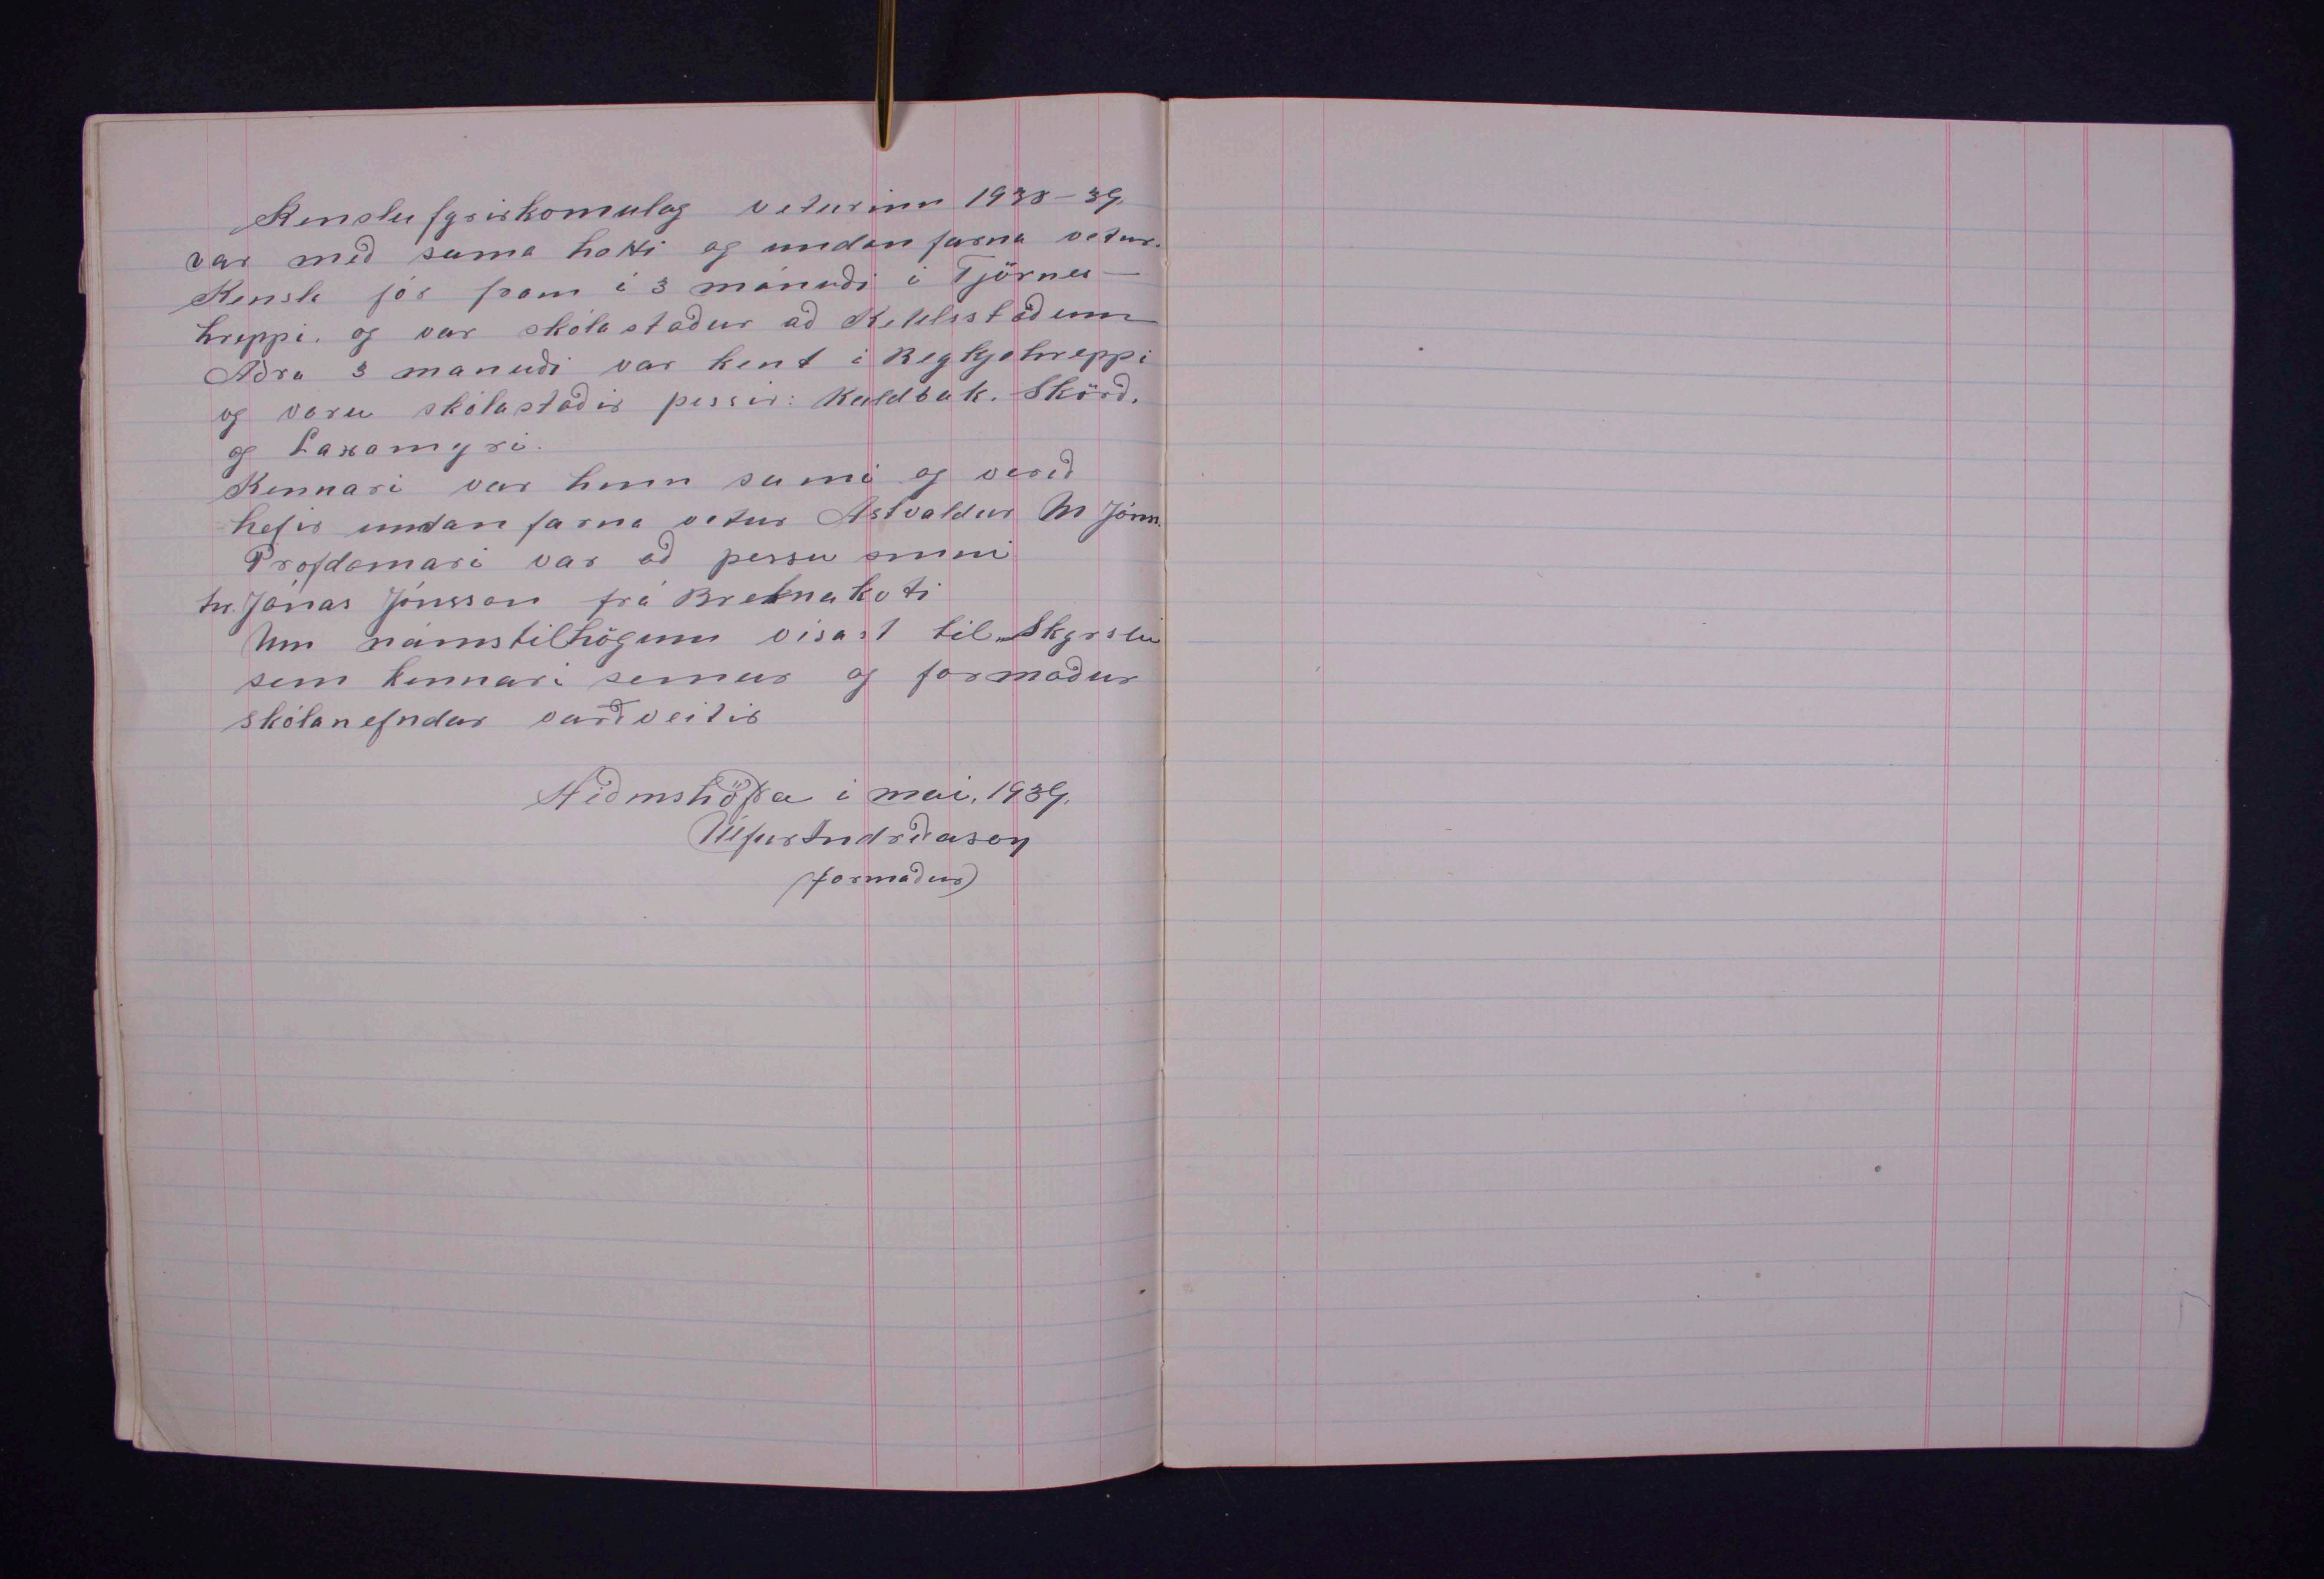 Kenslufyrirkomulag veturinn 1938-39.
var með sama hætti og undanfarna vetur.
Kensla fór fram í 3 mánuði í Tjörnes-
hreppi. og var skólastaður að Ketilsstöðum
Aðra 3 manuði var kent i Reykjahreppi
og voru skólastaðir þessir: Kaldbak. Skörð.
og Laxamyri.
Kennari var hinn sami og verið
hefir undanfarna vetur Astvaldur M Jónss.
Profdomari var að þessu sinni
hr. Jónas Jónsson frá Breknakoti
Um námstilhögun vísast til Skyrslu
sem kennari semur og formaður
skólanefndar varðveitir
Héðinshöfða i mai. 1939.
Úlfur Indriðason
(formaður)